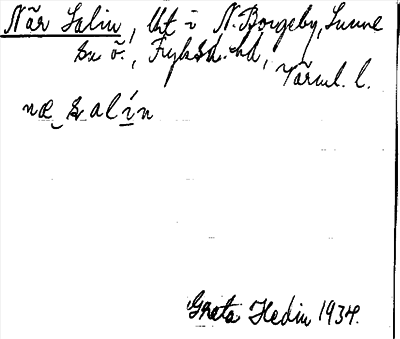 När Salin, lht i N. Borgeby, Sunne
sn ö., Fryksd. hd,
Värml. l.
næ s alín
Greta Hedin 1934.